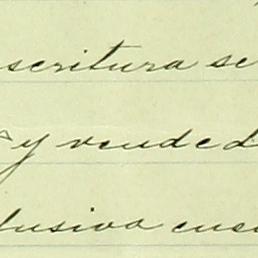 scritura se
y vended
lusiva cus